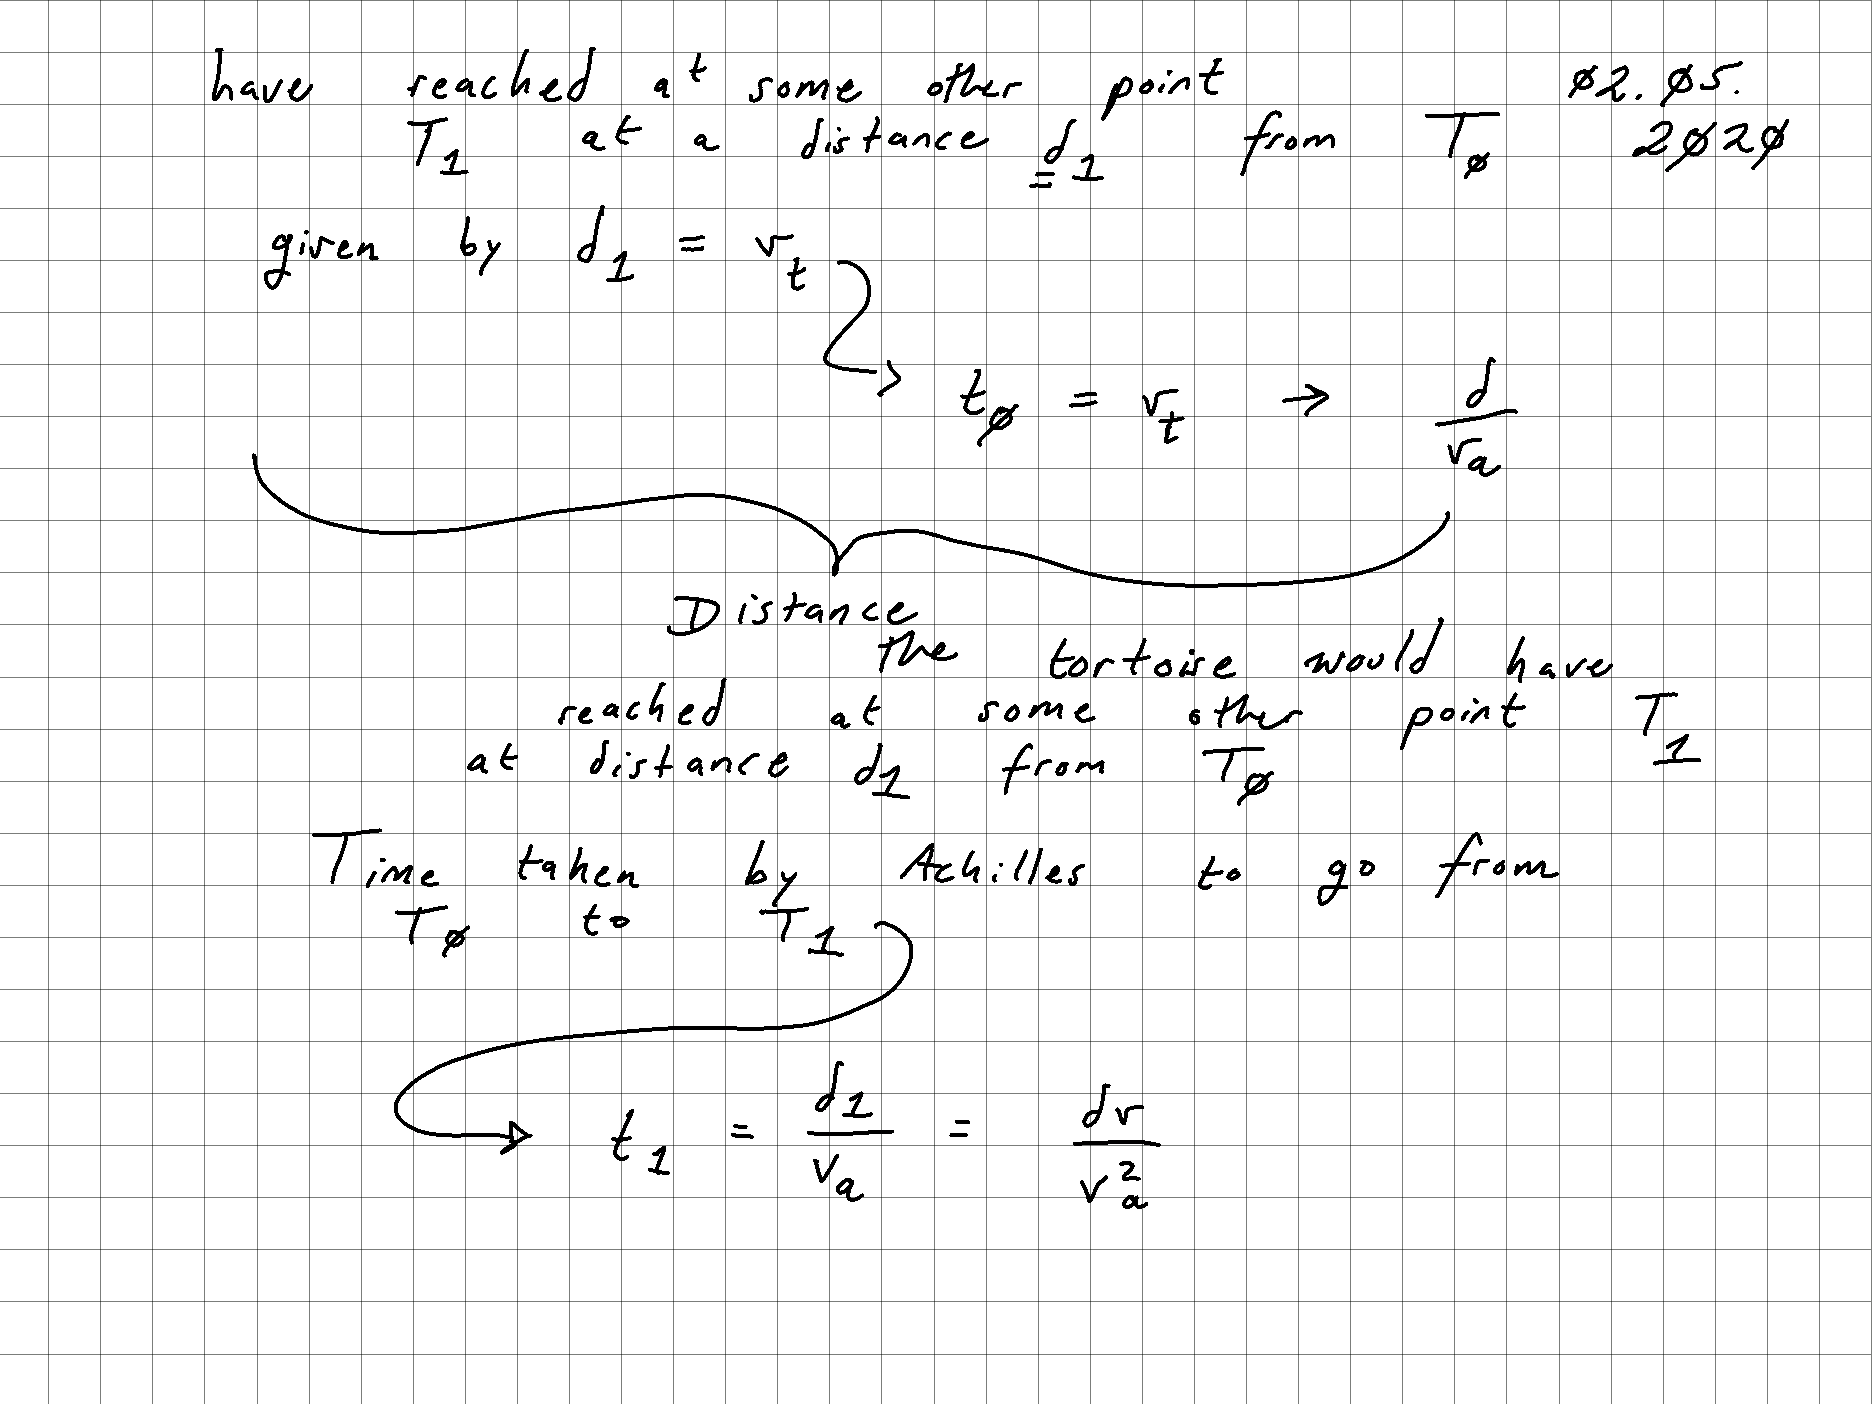 have reached at some other point ø2.ø5.
T₁ at a distance d₁ from Tø 2ø2ø
given by d₁ = v_t
tø = v_t → d/v_a
Distance
the tortoise would have
reached at some other point T₁
at distance d₁ from Tø
Time taken by Achilles to go from
Tø to T₁
t₁ = d₁/v_a = dv/v_a²